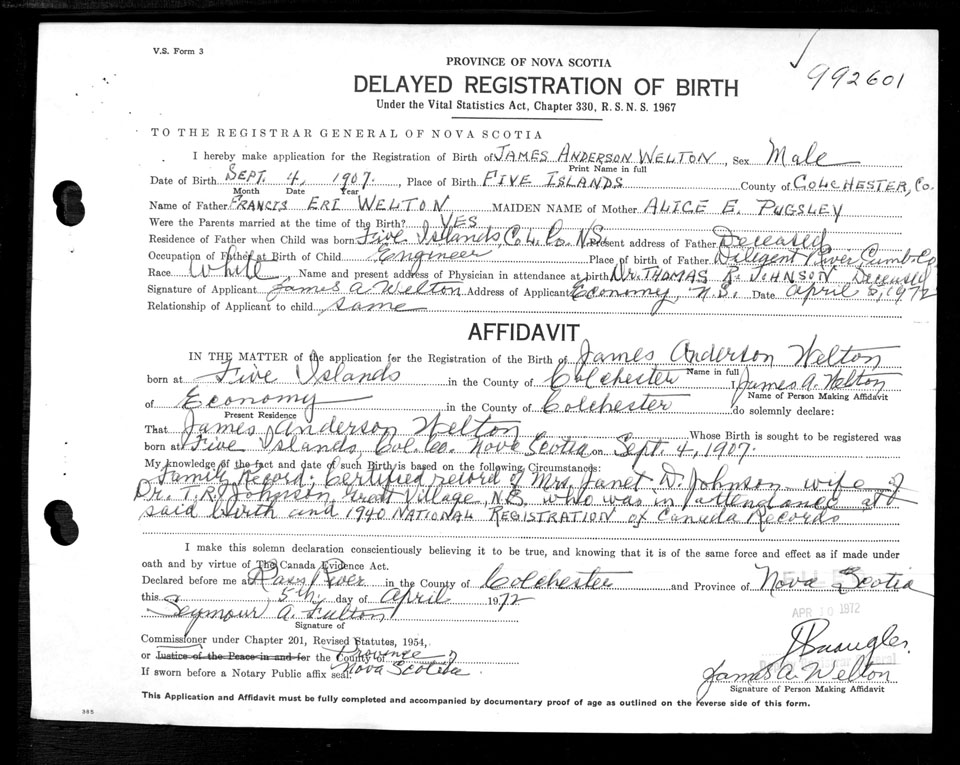 V.S. Form 3
992601
PROVINCE OF NOVA SCOTIA
DELAYED REGISTRATION OF BIRTH
Under the Vital Statistics Act, Chapter 330, R.S.N.S. 1967
TO THE REGISTRAR GENERAL OF NOVA SCOTIA
I hereby make application for the Registration of Birth of JAMES ANDERSON WELTON, Sex Male
Print Name in full
Date of Birth SEPT. 4, 1907, Place of Birth FIVE ISLANDS County of COLCHESTER, Co.
Month Date Year
Name of Father FRANCIS ERI WELTON MAIDEN NAME of Mother ALICE E. PUGSLEY
Were the Parents married at the time of the Birth? YES
Residence of Father when Child was born Five Islands Col. Co. N.S. Present address of Father Deceased
Occupation of Father at Birth of Child Engineer Place of birth of Father Diligent River, Cumb. Co.
Race White, Name and present address of Physician in attendance at birth Dr. THOMAS R. JOHNSON, Deceased
Signature of Applicant James A Welton Address of Applicant Economy, N.S. Date April 5, 1972
Relationship of Applicant to child same
AFFIDAVIT
IN THE MATTER of the application for the Registration of the Birth of James Anderson Welton
Name in full
born at Five Islands in the County of Colchester I, James A. Welton
Name of Person Making Affidavit
of Economy in the County of Colchester do solemnly declare:
Present Residence
That James Anderson Welton Whose Birth is sought to be registered was
born at Five Islands, Col. Co. Nova Scotia on Sept. 4, 1907.
My knowledge of the fact and date of such Birth is based on the following Circumstances:
Family Record; Certified record of Mrs. Janet D. Johnson wife of
Dr. T. R. Johnson, Great Village, N.S. who was in attendance at
said birth and 1940 NATIONAL REGISTRATION of Canada Records
I make this solemn declaration conscientiously believing it to be true, and knowing that it is of the same force and effect as if made under
oath and by virtue of The Canada Evidence Act.
Declared before me at Bass River in the County of Colchester and Province of Nova Scotia
this 5th day of April 1972
APR 10 1972
Seymour A. Fulton
Signature of
Commissioner under Chapter 201, Revised Statutes, 1954,
or Justice of the Peace in and for the County of Province of
If sworn before a Notary Public affix seal. Nova Scotia.
James A. Welton
Signature of Person Making Affidavit
This Application and Affidavit must be fully completed and accompanied by documentary proof of age as outlined on the reverse side of this form.
385